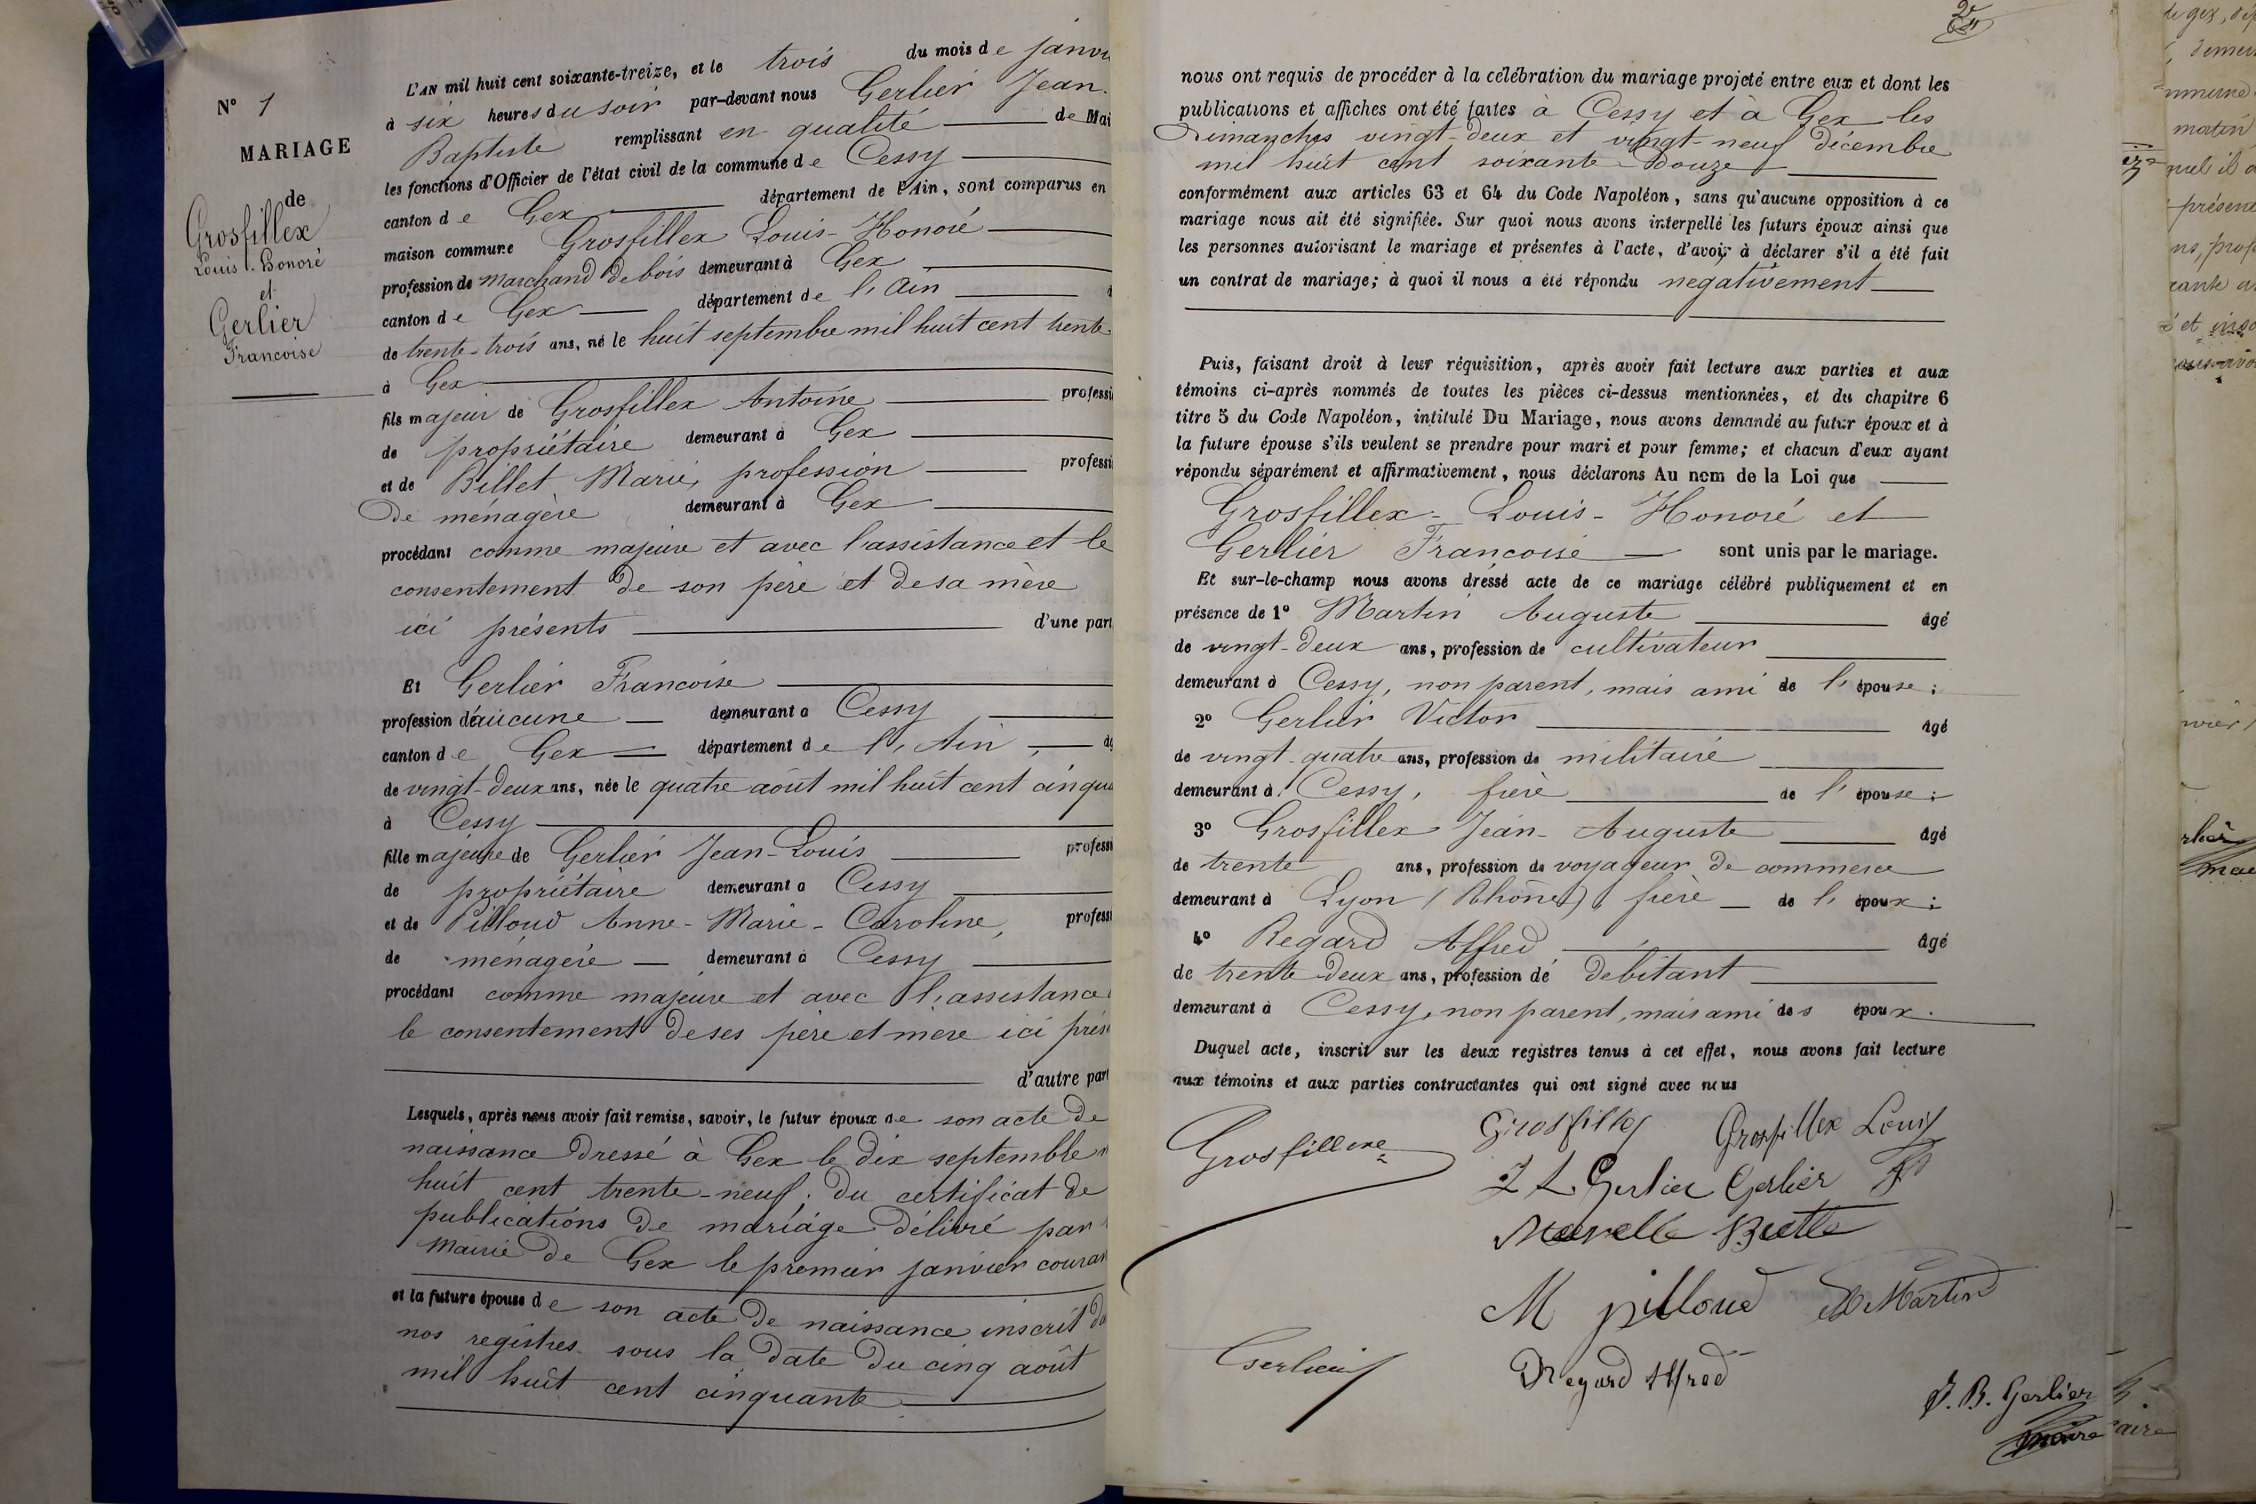 N° 1
MARIAGE
de
Grosfillex
Louis-Honoré
et
Gerlier
Francoise
L'AN mil huit cent soixante-treize, et le trois du mois de janvi
à six heures du soir par-devant nous Gerlier Jean
Baptiste remplissant en qualité de Mai
les fonctions d'Officier de l'état civil de la commune de Cessy
canton de Gex département de l'Ain, sont comparus en
maison commune Grosfillex Louis-Honoré
profession de marchand de bois demeurant à Gex
canton de Gex département de l'Ain
de trente-trois ans, né le huit septembre mil huit cent trente-
à Gex
fils majeur de Grosfillex Antoine professi
de propriétaire demeurant à Gex
et de Billet Marie, profession professi
de ménagère demeurant à Gex
procédant comme majeure et avec l'assistance et le
consentement de son père et de sa mère
ici présents d'une part
Et Gerlier Francoise
profession d'aucune demeurant à Cessy
canton de Gex département de l'Ain, âg
de vingt-deux ans, née le quatre août mil huit cent cinqua
à Cessy
fille majeure de Gerlier Jean-Louis professi
de propriétaire demeurant à Cessy
et de Pilloud Anne-Marie-Caroline, professi
de ménagère demeurant à Cessy
procédant comme majeure et avec l'assistance
le consentement de ses père et mère ici prés
d'autre part
Lesquels, après nous avoir fait remise, savoir, le futur époux de son acte de
naissance dressé à Gex le dix septembre
huit cent trente-neuf; du certificat de
publications de mariage délivré par
Mairie de Gex le premier janvier couran
et la future épouse de son acte de naissance inscrit da
nos registres sous la date du cinq août
mil huit cent cinquante
2e
nous ont requis de procéder à la célébration du mariage projeté entre eux et dont les
publications et affiches ont été faites à Cessy et à Gex les
Dimanches vingt-deux et vingt-neuf décembre
mil huit cent soixante-douze
conformément aux articles 63 et 64 du Code Napoléon, sans qu'aucune opposition à ce
mariage nous ait été signifiée. Sur quoi nous avons interpellé les futurs époux ainsi que
les personnes autorisant le mariage et présentes à l'acte, d'avoir à déclarer s'il a été fait
un contrat de mariage; à quoi il nous a été répondu negativement
Puis, faisant droit à leur réquisition, après avoir fait lecture aux parties et aux
témoins ci-après nommés de toutes les pièces ci-dessus mentionnées, et du chapitre 6
titre 5 du Code Napoléon, intitulé Du Mariage, nous avons demandé au futur époux et à
la future épouse s'ils veulent se prendre pour mari et pour femme; et chacun d'eux ayant
répondu séparément et affirmativement, nous déclarons Au nom de la Loi que
Grosfillex-Louis-Honoré et
Gerlier Francoise sont unis par le mariage.
Et sur-le-champ nous avons dressé acte de ce mariage célébré publiquement et en
présence de 1° Martin Auguste âgé
de vingt-deux ans, profession de cultivateur
demeurant à Cessy, non parent, mais ami de l'épouse;
2° Gerlier Victor âgé
de vingt-quatre ans, profession de militaire
demeurant à Cessy, frère de l'épouse;
3° Grosfillex Jean-Auguste âgé
de trente ans, profession de voyageur de commerce
demeurant à Lyon (Rhône), frère de l'époux;
4° Regard Alfred âgé
de trente-deux ans, profession de débitant
demeurant à Cessy, non parent, mais ami des époux.
Duquel acte, inscrit sur les deux registres tenus à cet effet, nous avons fait lecture
aux témoins et aux parties contractantes qui ont signé avec nous
Grosfillex Grosfillex Louis
Grosfillex
J L Gerlier Gerlier
M pilloud Martin
Gerlier
Regard Alfred
J. B. Gerlier
maire